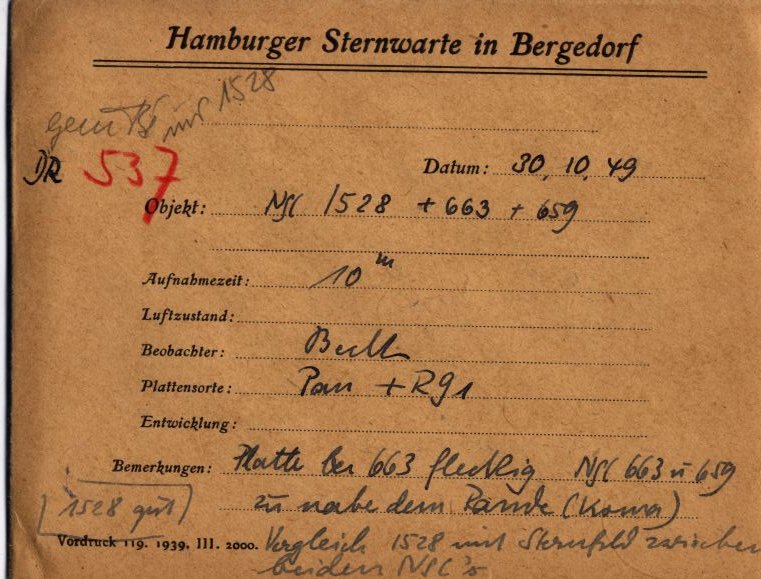 Hamburger Sternwarte in Bergedorf
mit 1528
DR 537
Datum: 30, 10, 49
Objekt: NGC 1528 + 663 + 659
Aufnahmezeit: 10 m
Luftzustand:
Beobachter:
Plattensorte: Pan + RG1
Entwicklung:
Bemerkungen: Platte bei 663 fleckig NGC 663 u 659
1528 gut
zu nahe dem Rande (Koma)
Vordruck 119. 1939. III. 2000. Vergleich 1528 mit Sternfeld zwischen
beiden NGC's